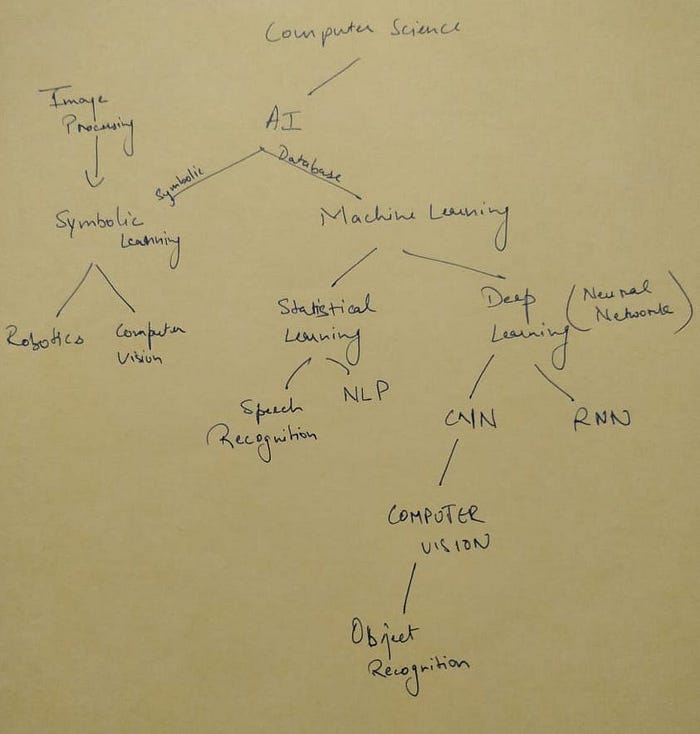 Computer Science
Image
Processing
AI
Symbolic
Database
Symbolic
Learning
Machine Learning
Robotics
Computer
Vision
Statistical
Learning
Deep
Learning
(Neural
Networks)
Speech
Recognition
NLP
CNN
RNN
COMPUTER
VISION
Object
Recognition